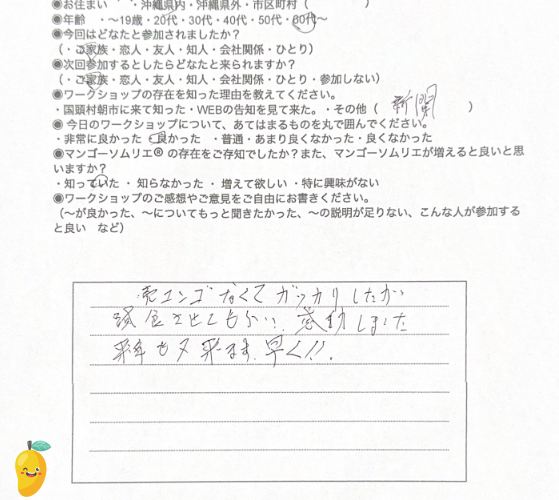 ◉お住まい ・沖縄県内・沖縄県外・市区町村（ ）
◉年齢 ・～19歳・20代・30代・40代・50代・60代～
◉今回はどなたと参加されましたか？
（・ご家族・恋人・友人・知人・会社関係・ひとり）
◉次回参加するとしたらどなたと来られますか？
（・ご家族・恋人・友人・知人・会社関係・ひとり・参加しない）
◉ワークショップの存在を知った理由を教えてください。
・国頭村朝市に来て知った・WEBの告知を見て来た。・その他（ 新聞 ）
◉ 今日のワークショップについて、あてはまるものを丸で囲んでください。
・非常に良かった ・良かった ・普通・あまり良くなかった・良くなかった
◉マンゴーソムリエ® の存在をご存知でしたか？また、マンゴーソムリエが増えると良いと思
いますか？
・知っていた ・ 知らなかった ・ 増えて欲しい ・特に興味がない
◉ワークショップのご感想やご意見をご自由にお書きください。
（～が良かった、～についてもっと聞きたかった、～の説明が足りない、こんな人が参加する
と良い など）
なくてガッカリしたが
試食させてもらい、感動しました
来年も又来ます 早く!!